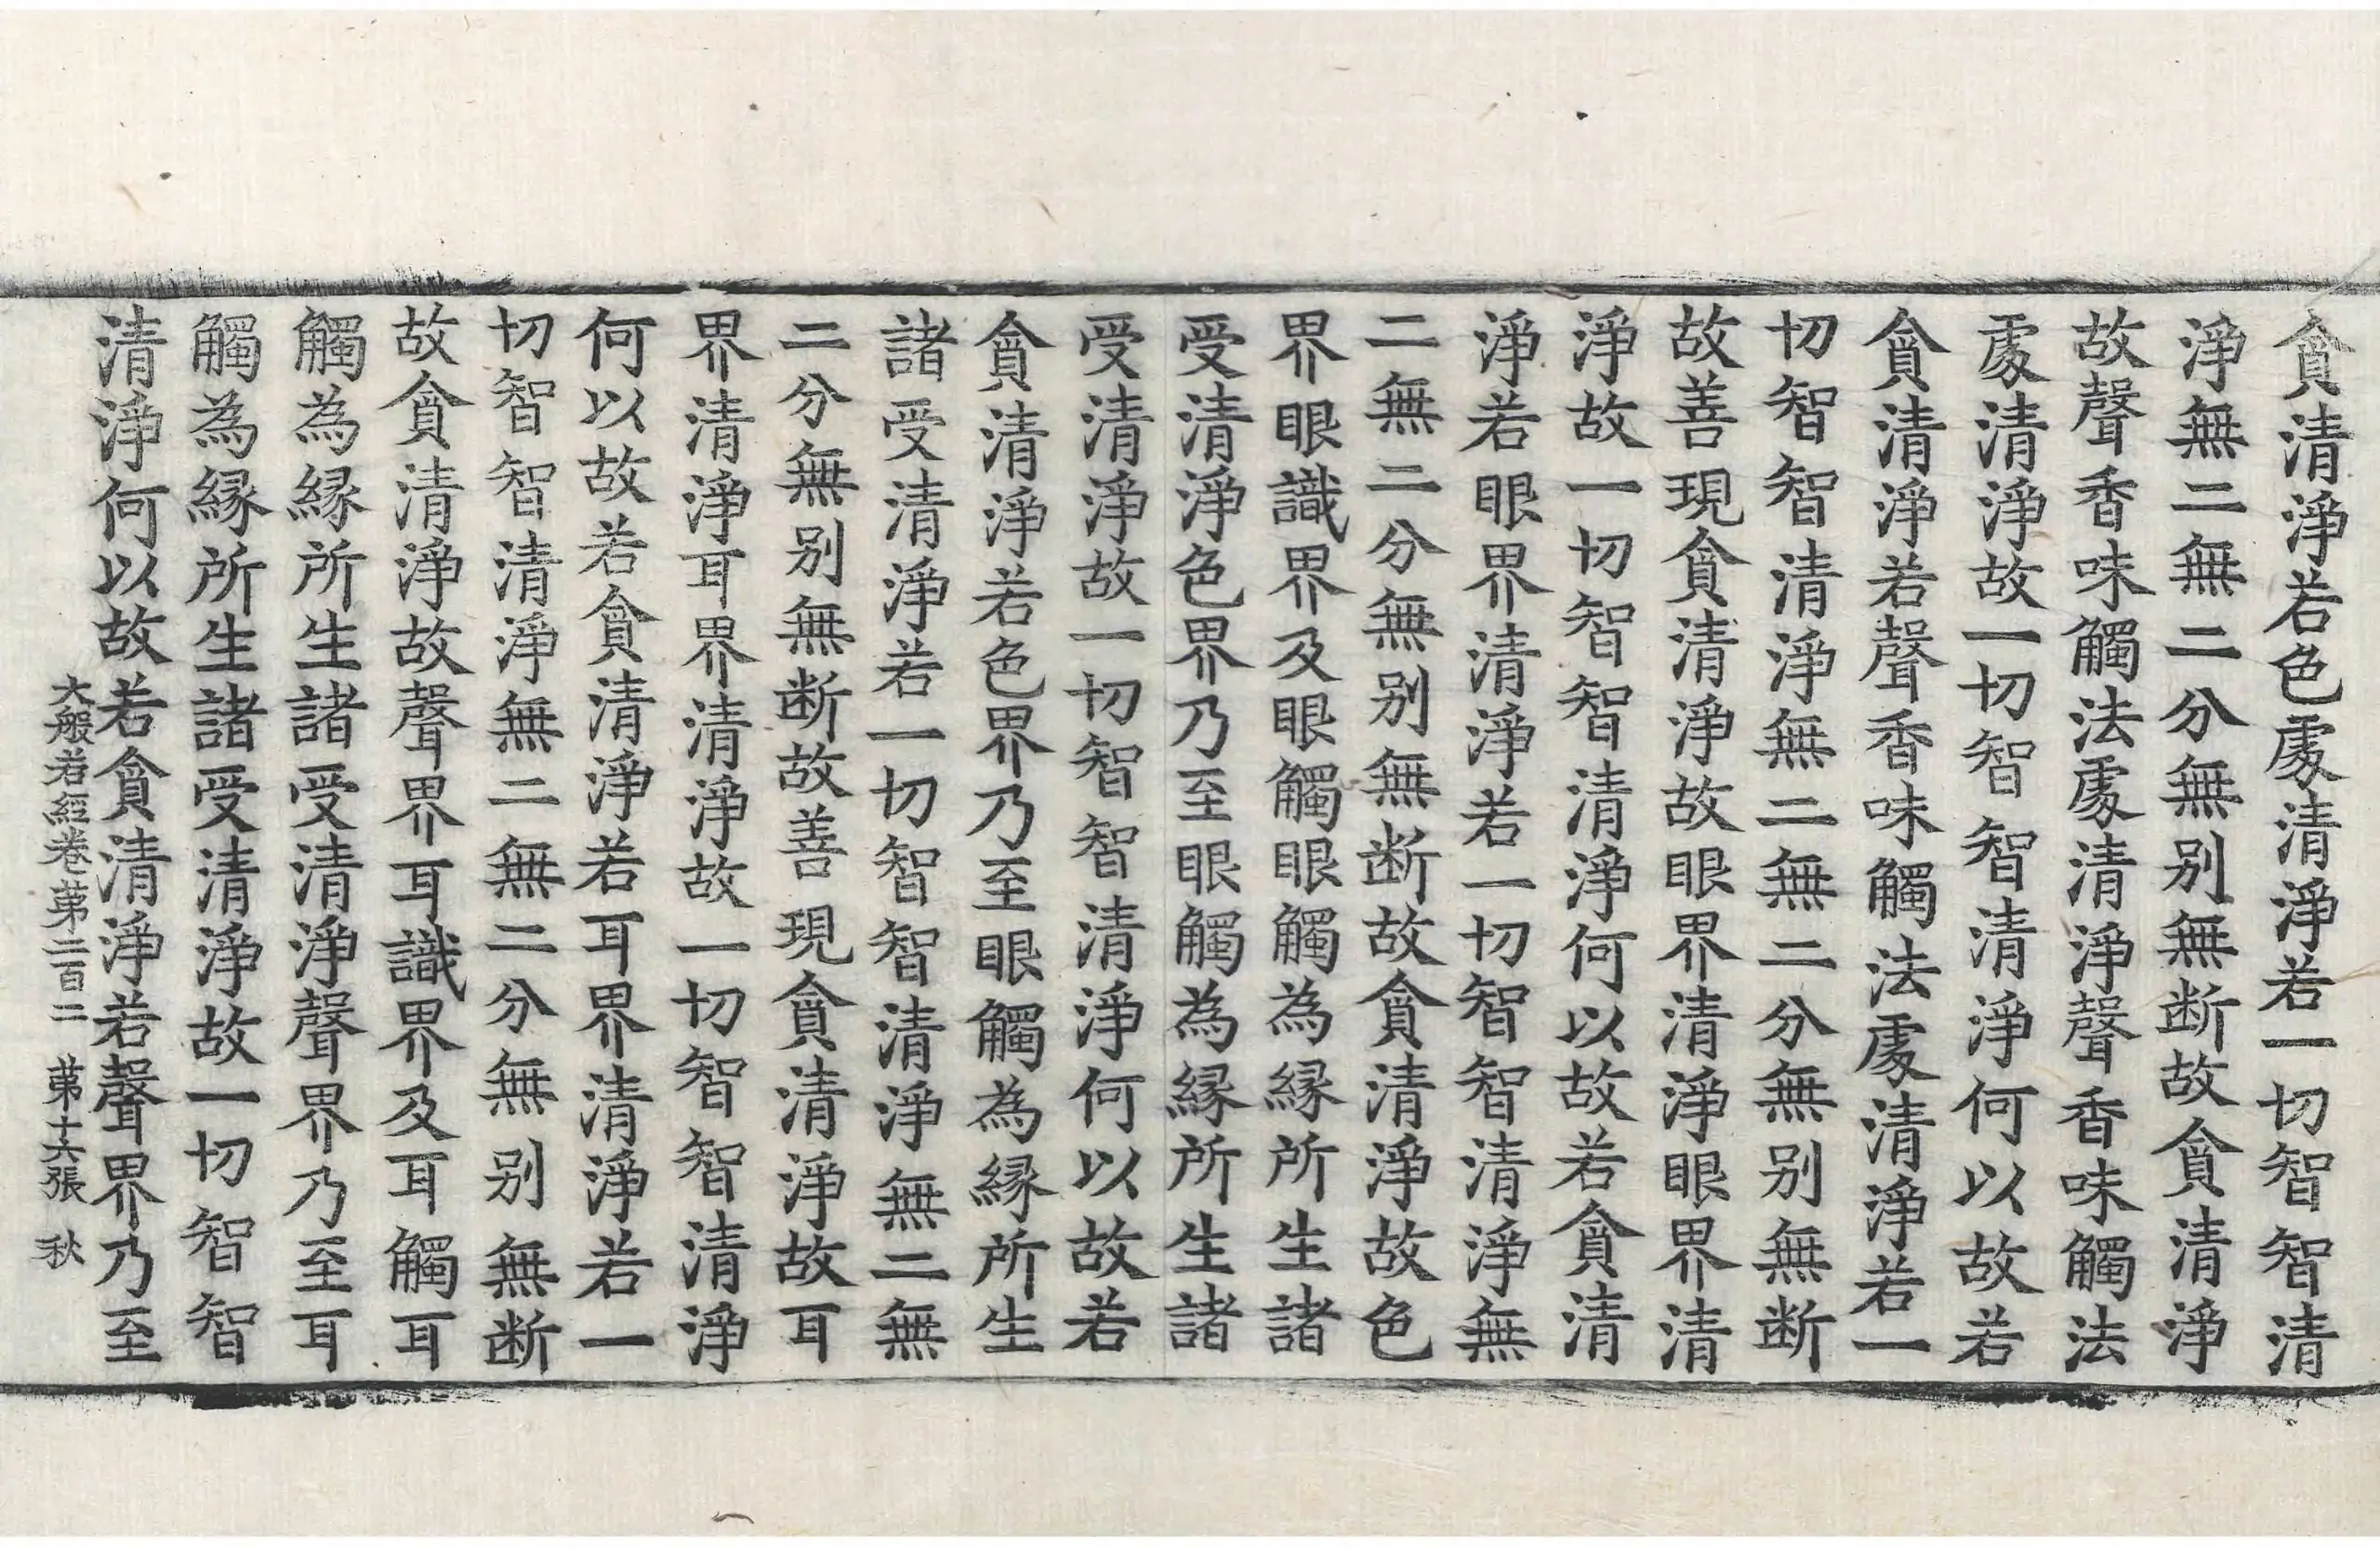 貪清淨若色處清淨若一切智智清
淨無二無二分無别無断故貪清淨
故聲香味觸法處清淨聲香味觸法
處清淨故一切智智清淨何以故若
貪清淨若聲香味觸法處清淨若一
切智智清淨無二無二分無别無断
故善現貪清淨故眼界清淨眼界清
淨故一切智智清淨何以故若貪清
淨若眼界清淨若一切智智清淨無
二無二分無别無断故貪清淨故色
界眼識界及眼觸眼觸為緣所生諸
受清淨色界乃至眼觸為緣所生諸
受清淨故一切智智清淨何以故若
貪清淨若色界乃至眼觸為緣所生
諸受清淨若一切智智清淨無二無
二分無别無断故善現貪清淨故耳
界清淨耳界清淨故一切智智清淨
何以故若貪清淨若耳界清淨若一
切智智清淨無二無二分無别無断
故貪清淨故聲界耳識界及耳觸耳
觸為緣所生諸受清淨聲界乃至耳
觸為緣所生諸受清淨故一切智智
清淨何以故若貪清淨若聲界乃至
大般若經卷第二百二 第十六張 秋